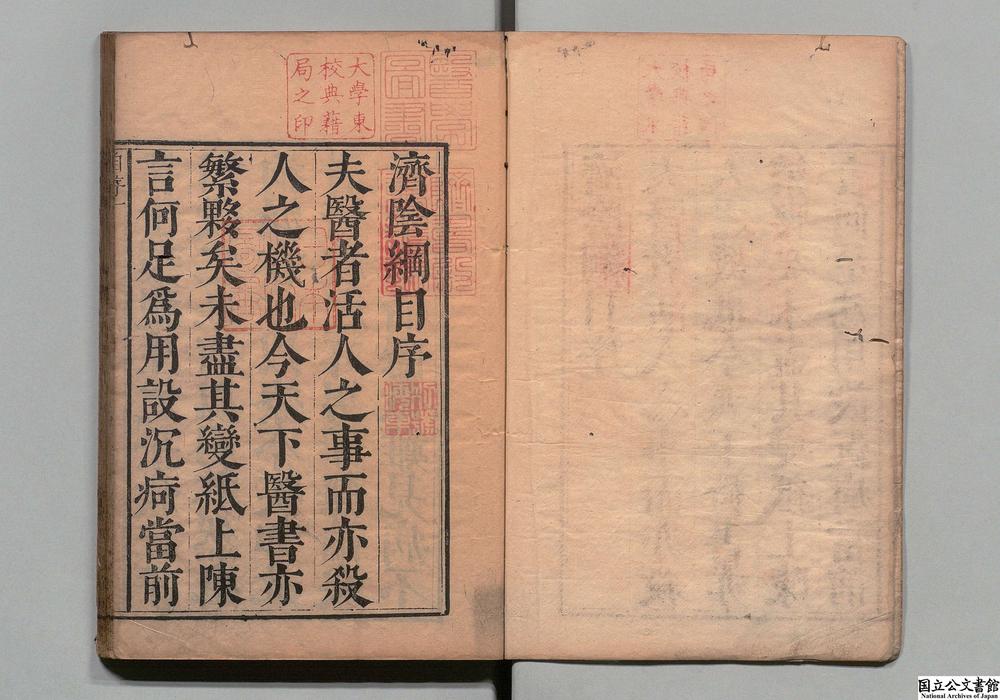 濟陰綱目序
夫醫者活人之事而亦殺
人之機也今天下醫書亦
繁夥矣未盡其變紙上陳
言何足爲用設沉疴當前
大學東
校典藉
局之印
国立公文書館
National Archives of Japan